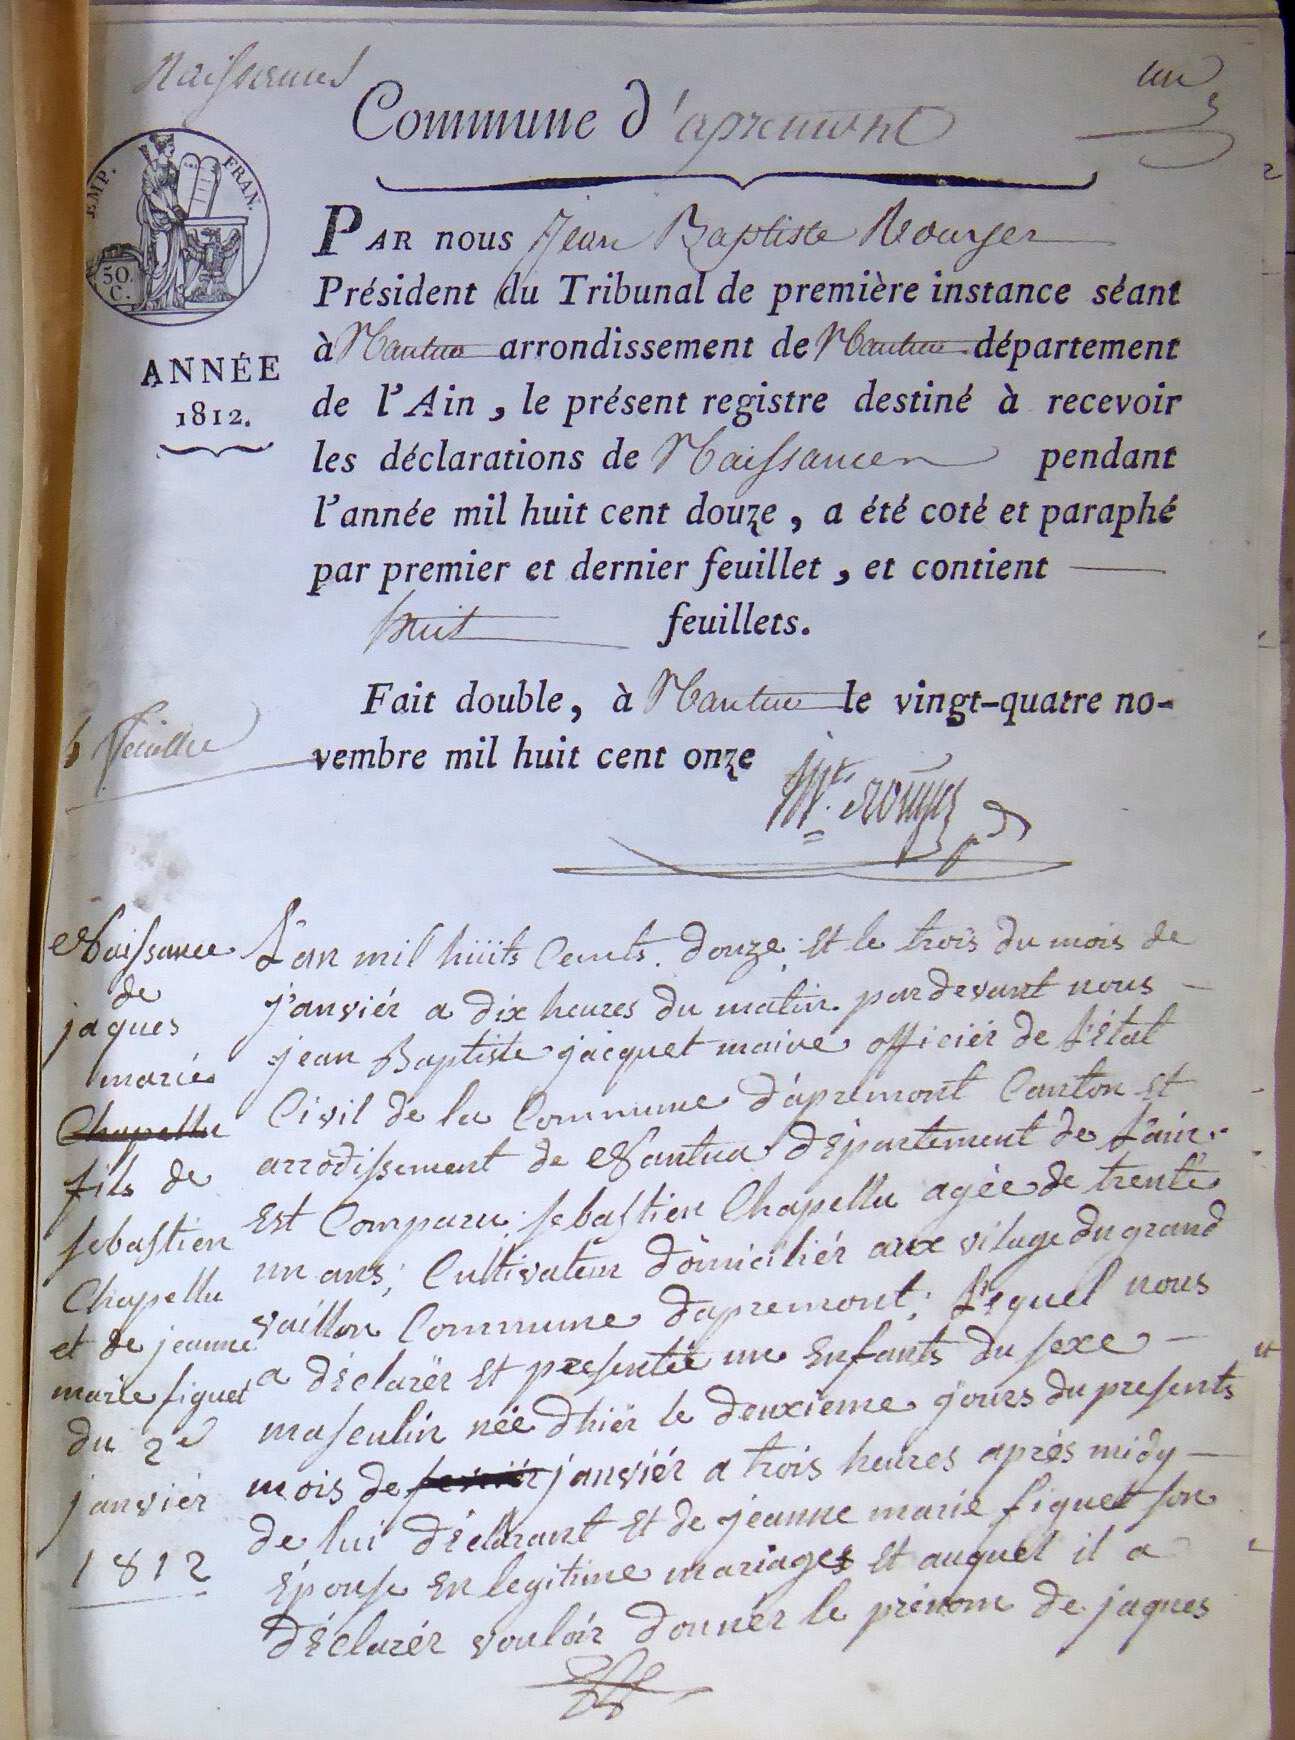 Naissances
un
Commune d'apremont
EMP. FRAN.
50. C.
ANNÉE
1812.
PAR nous Jean Baptiste Rouyer
Président du Tribunal de première instance séant
à Nantua arrondissement de Nantua département
de l'Ain, le présent registre destiné à recevoir
les déclarations de Naissances pendant
l'année mil huit cent douze, a été coté et paraphé
par premier et dernier feuillet, et contient
huit feuillets.
Fait double, à Nantua le vingt-quatre no-
vembre mil huit cent onze
Naissance
de
jaques
marie
Chapellu
fils de
sebastien
Chapellu
et de jeanne
marie figuet
du 2e
janviér
1812
L'an mil hüits Cents douze Et le trois du mois de
janviér a dix heures du matin pardevant nous
jean Baptiste jacquet maire officiér de L'état
Civil de la Commune d'apremont Canton Et
arrodissement de Nantua département de L'ain
Est Comparu sebastien Chapellu agée de trente
un ans; Cultivateur domiciliér aux vilage du grand
vaillon Commune d'apremont; Lequel nous
a déclarér Et presentée un Enfants du sexe
masculin née d'hiér le deuxieme jours du presents
mois de fevriér janviér a trois heures aprés midy
de lui déclarant Et de jeanne marie figuet son
Épouse En legitime mariages Et auquel il a
déclarér vouloir donnér le prénom de jaques